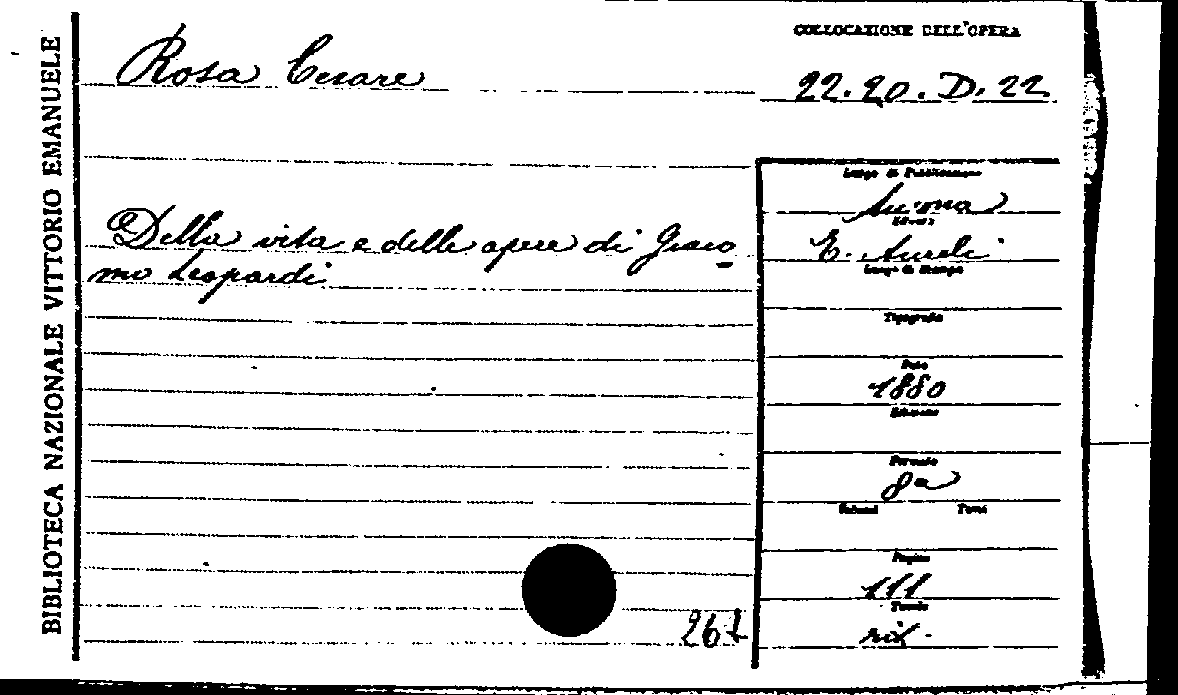 BIBLIOTECA NAZIONALE VITTORIO EMANUELE
Rosa Cesare
COLLOCAZIONE DELL'OPERA
22.20.D.22
Della vita e delle opere di Giaco
mo Leopardi
Luogo di Pubblicazione
Ancona
Editore
E. Aureli
Luogo di Stampa
Tipografia
Data
1880
Edizione
Formato
8a
Volumi Tomi
Pagine
111
Tavole
rit.
267